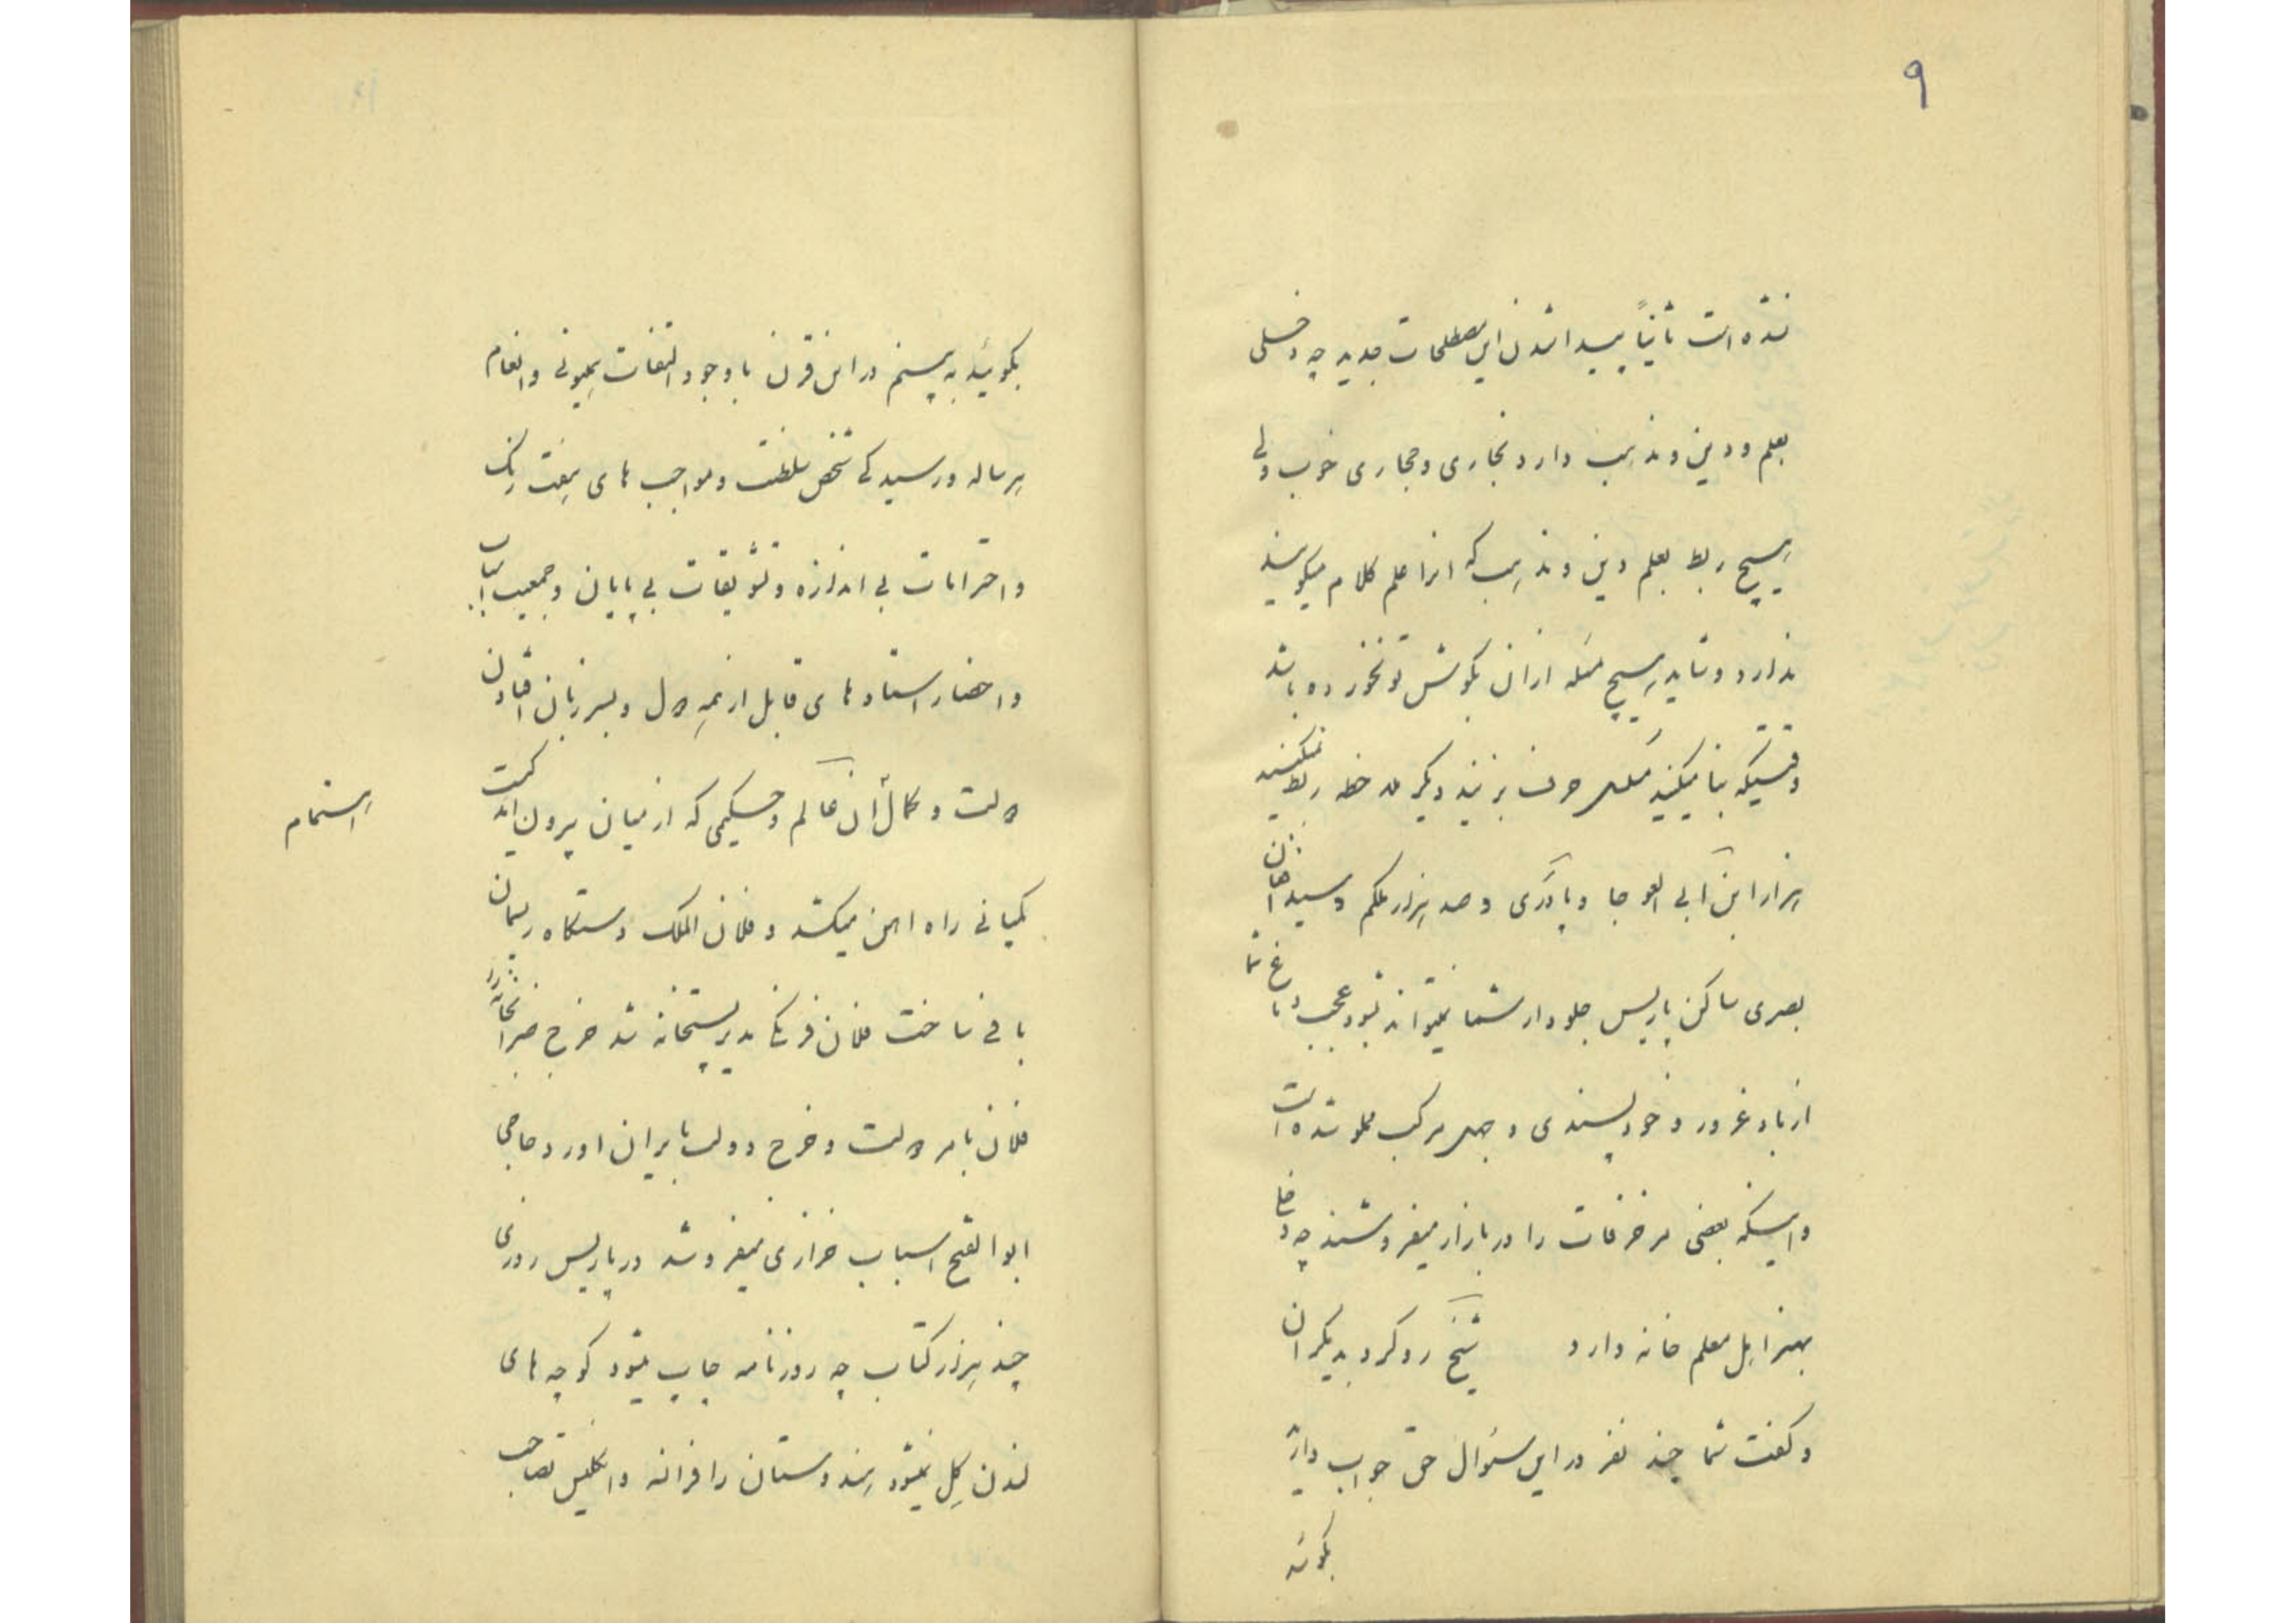 ۹
نشده است ثانیاً پیدا شدن این مصطلحات جدید چه دخلی
بعلم و دین و مذهب دارد نجاری و حجاری خوب ولی
هیچ ربط بعلم دین و مذهب که انرا علم کلام میگویند
ندارد و شاید هیچ مسئله از ان بگوش تو نخورده باشد
وقتیکه بنا میکنید حرف بزنید دیگر ملاحظه ربط نمیکنید
هزار ابن ابی العوجا و پادری و صد هزار ملکم و سید
بصری ساکن پاریس جلودار شما نمیتواند بشود عجب دماغ شما
از باد غرور و خودپسندی و جهل مرکب مملو شده است
و اینکه بعضی مزخرفات را در بازار میفروشند چه دخل
بهنر اهل معلم خانه دارد شیخ رو کرد بدیگران
و گفت شما چند نفر در این سئوال حق جواب دارید
بگوئید
بگوئید به بینم در این قرن با وجود التفات میلیونی و انعام
هر ساله و رسیدگی شخص سلطنت و مواجب های هفت رنگ
و احترامات بی اندازه و تشویقات بی پایان و جمعیت اسباب
و احضار استاد های قابل از همه دول و بسر زبان افتادن
دولت و کمال ان عالم و حکیمی که از میان بیرون امد کیست
استمام
کمپانی راه اهن میکشد و فلان الملک دستگاه ریسمان
بافی ساخت فلان فرنگی مدیر پستخانه شد خرج ضرابخانه را
فلان بامر دولت و خرج دولت بایران اورد حاجی
ابوالفتح اسباب خرازی میفروشد در پاریس روزی
چند هزار کتاب چه روزنامه چاپ میشود کوچه های
لندن گل نمیشود هندوستان را فرانسه و انگلیس تصاحب